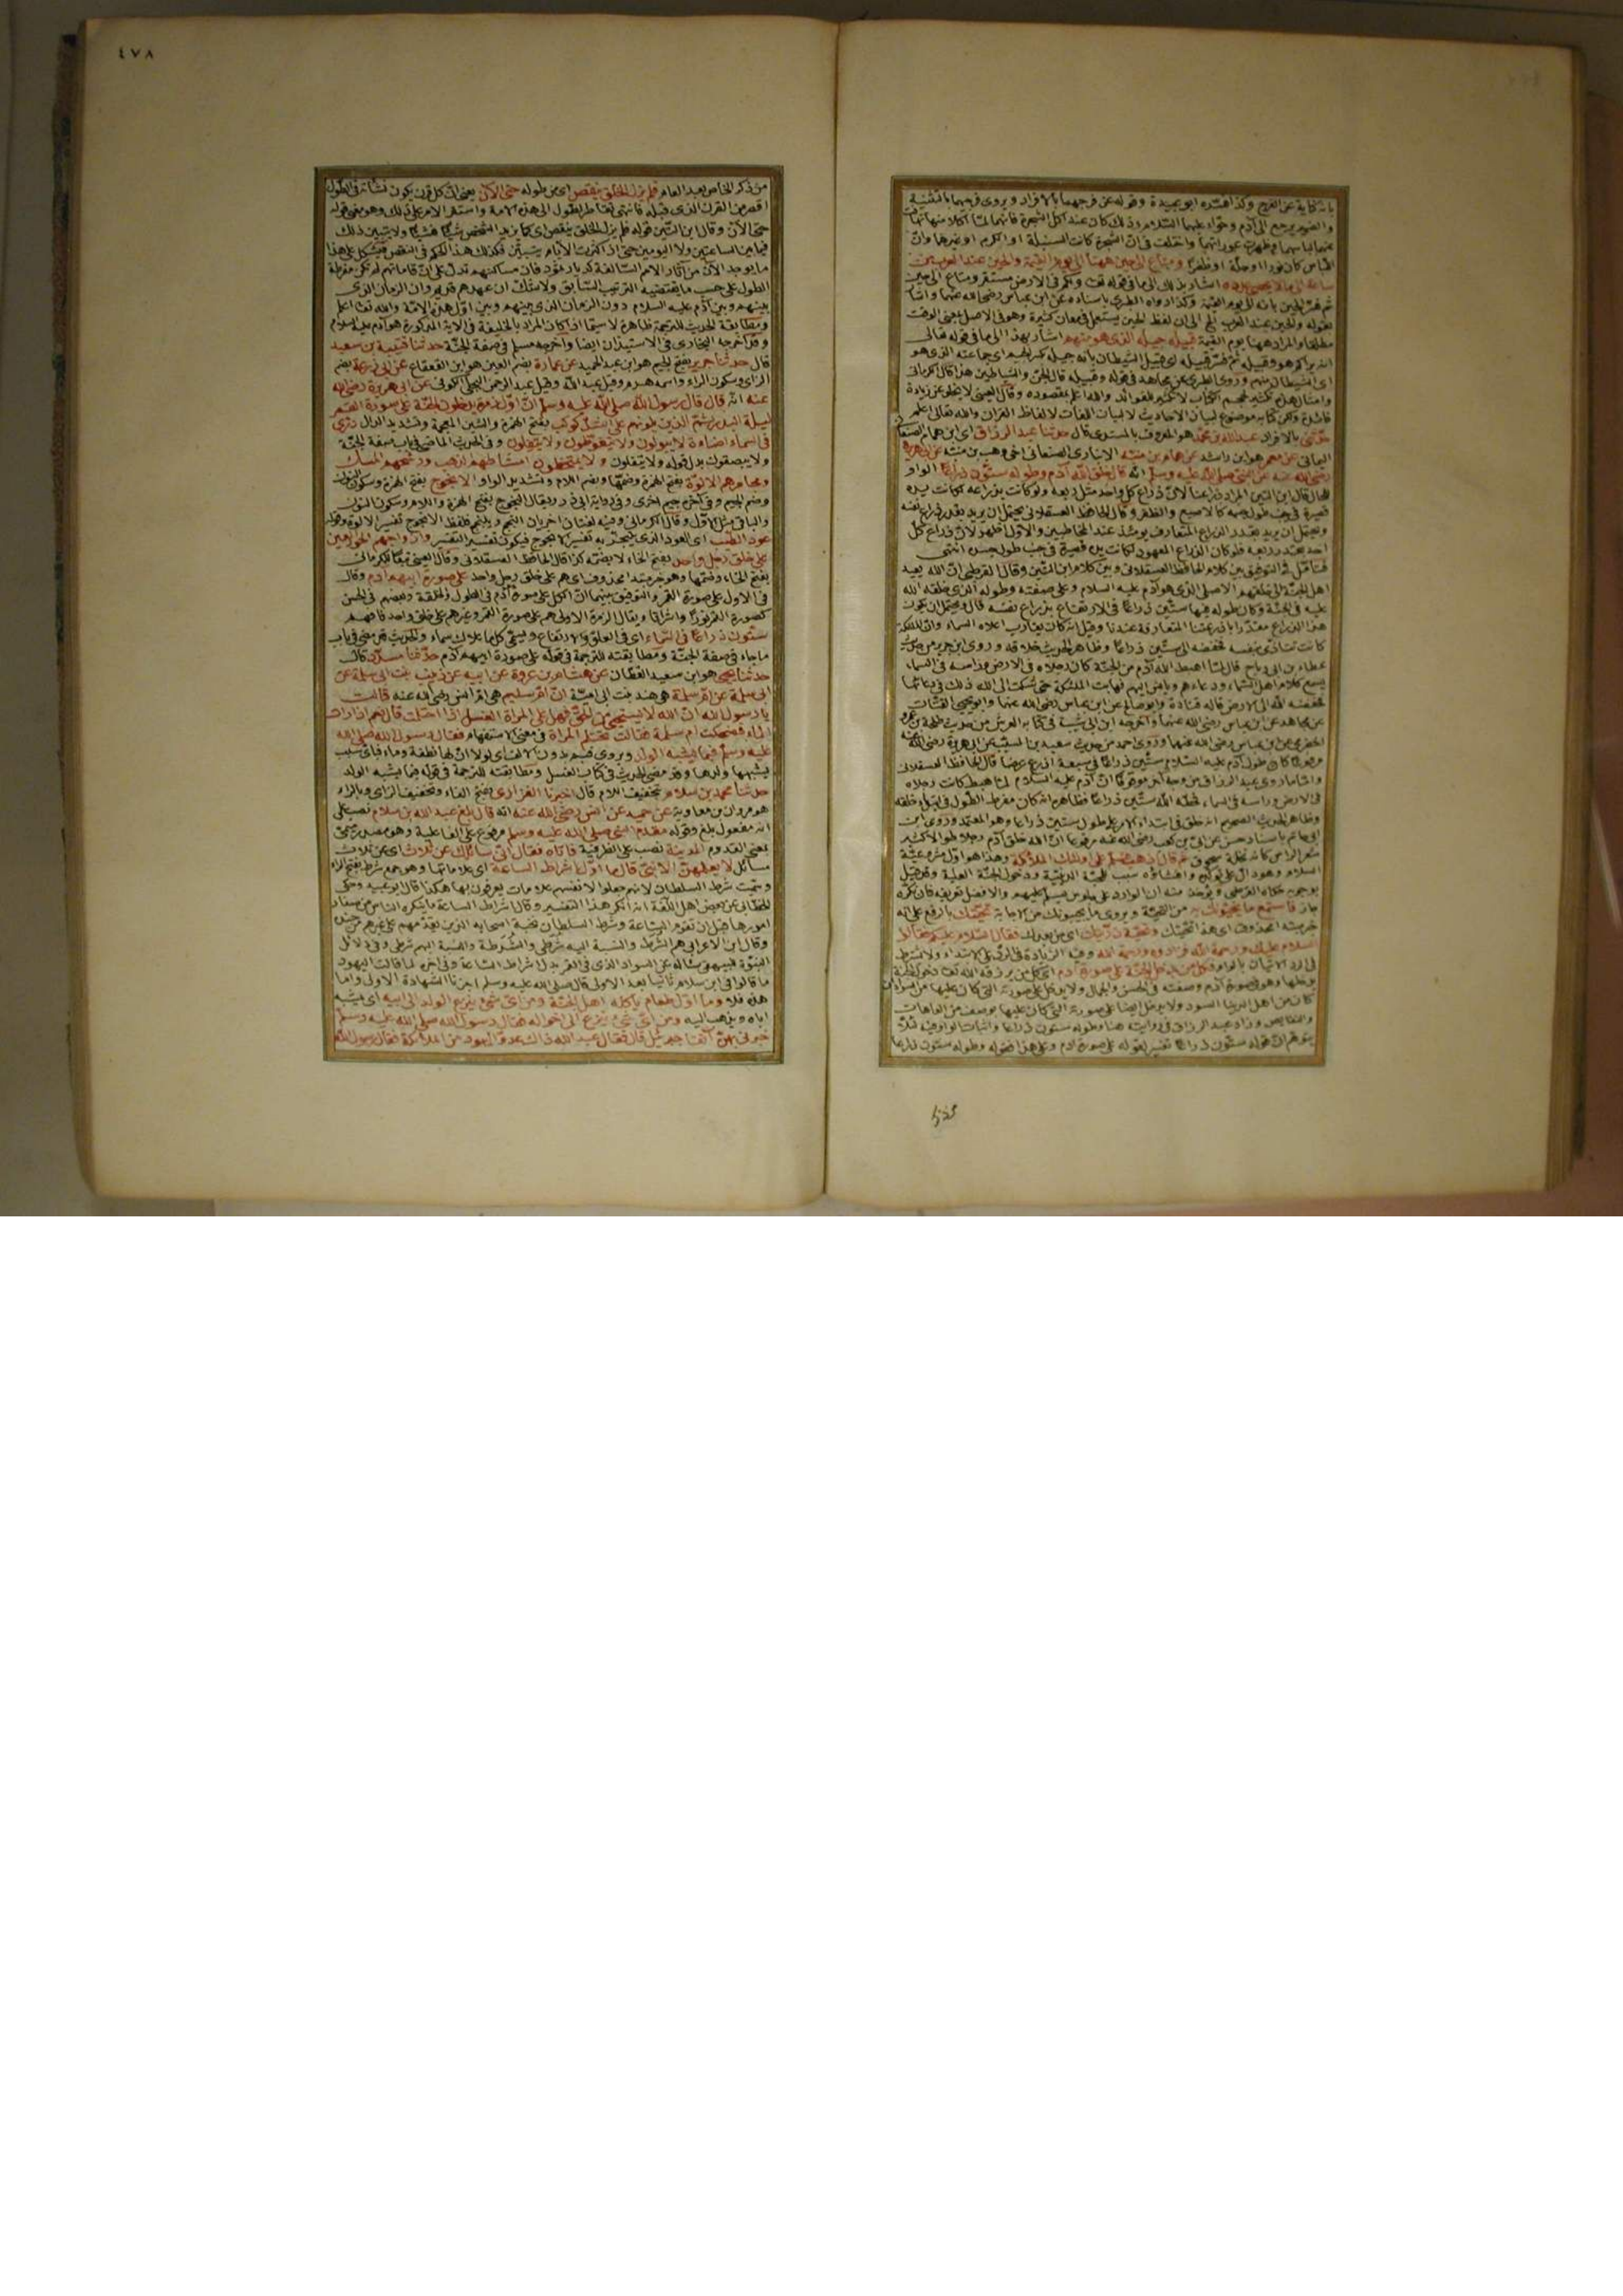 بانه كناية عن الفرج وكذا فسره ابو عبيدة وقوله عن فرجهما بالافراد ويروى فرجيهما بالتثنية
والضمير يرجع الى آدم وحواء عليهما السلام وذلك كان عند اكل الشجرة فانهما لما اكلا منها
عنهما لباسهما وظهرت عوراتهما واختلف في ان الشجرة كانت السنبلة او الكرم او غيرهما وان
اللباس كان نورا او حلة او ظفرا ومتاع الى حين ههنا الى يوم القيمة والحين عند العرب من
ساعة الى ما لا يحصى عدده اشار بذلك الى ما في قوله تعالى ولكم في الارض مستقر ومتاع الى حين
ثم فسر الحين بانه الى يوم القيمة وكذا رواه الطبري باسناده عن ابن عباس رضي الله عنهما واشار
بقوله والحين عند العرب الى ان لفظ الحين يستعمل في معان كثيرة وهو في الاصل بمعنى الوقت
مطلقا والمراد ههنا يوم القيمة قبيله جيله الذي هو منهم اشار بهذا الى ما في قوله تعالى
انه يراكم هو وقبيله ثم فسر قبيله اى قبيل الشيطان بانه جيله بكسر الجيم اى جماعته الذي هو
اى الشيطان منهم وروى الطبري عن مجاهد في قوله وقبيله قال الجن والشياطين هذا قال الكرماني
وامثال هذه تكثير لحجم الكتاب لا تكثير للفوائد والله اعلم بمقصوده وقال العيني لا يخلو عن زيادة
فائدة ولكن كتابه موضوع لبيان الاحاديث لا لبيان اللغات لالفاظ القران والله تعالى اعلم
حدثني بالافراد عبد الله بن محمد هو المعروف بالمسندي قال حدثنا عبد الرزاق اى ابن همام الصنعاني
اليماني عن معمر هو ابن راشد عن همام بن منبه الانباري الصنعاني اخي وهب بن منبه عن ابي هريرة
رضي الله عنه عن النبي صلى الله عليه وسلم انه قال خلق الله آدم وطوله ستون ذراعا الواو
للحال قال ابن التين المراد ذراعنا لان ذراع كل واحد مثل ربعه ولو كانت بذراعه لكانت يده
قصيرة في جنب طول جسمه كالاصبع والظفر وقال الحافظ العسقلاني يحتمل ان يريد بقدر ذراع نفسه
ويحتمل ان يريد بقدر الذراع المتعارف يومئذ عند المخاطبين والاول اظهر لان ذراع كل
احد بقدر ربعه فلو كان الذراع المعهود لكانت يده قصيرة في جنب طول جسده انتهى
فتأمل في التوفيق بين كلام الحافظ العسقلاني وبين كلام ابن التين وقال القرطبي ان الله يعيد
اهل الجنة الى خلقتهم الاصلي الذي هو آدم عليه السلام وعلى صفته وطوله الذي خلقه الله
عليه في الجنة وكان طوله فيها ستين ذراعا في الارتفاع بذراع نفسه قال ويحتمل ان يكون
هذا الذراع مقدرا باذرعتنا المتعارفة عندنا وقيل انه كان يقارب اعلاه السماء وان الملائكة
كانت تتأذى بنفسه فخفضه الى ستين ذراعا وظاهر الحديث خلافه وروى ابن جرير من حديث
عطاء بن ابي رباح قال لما اهبط الله آدم من الجنة كان رجلاه في الارض ورأسه في السماء
يسمع كلام اهل السماء ودعاءهم ويأنس اليهم فهابت الملائكة حتى شكت الى الله ذلك في دعائها
فخفضه الله الى الارض قاله قتادة وابو صالح عن ابن عباس رضي الله عنهما وابو يحيى القتات
عن مجاهد عن ابن عباس رضي الله عنهما واخرجه ابن ابي شيبة في كتابه العرش من حديث طلحة بن عمرو
الحضرمي عن ابن عباس رضي الله عنهما وروى احمد من حديث سعيد بن المسيب عن ابي هريرة رضي الله عنه
مرفوعا كان طول آدم عليه السلام ستين ذراعا في سبعة اذرع عرضا قال الحافظ العسقلاني
واما ما روى عبد الرزاق من وجه آخر موقوفا ان آدم عليه السلام لما هبط كانت رجلاه
في الارض ورأسه في السماء فحطه الله ستين ذراعا فظاهره انه كان مفرط الطول في ابتداء خلقه
وظاهر الحديث الصحيح انه خلق في ابتداء الامر على طول ستين ذراعا وهو المعتمد وروى ابن
ابي حاتم باسناد حسن عن ابي بن كعب رضي الله عنه مرفوعا ان الله خلق آدم رجلا طوالا كثير
شعر الرأس كانه نخلة سحوق ثم قال اذهب فسلم على اولئك الملائكة وهذا هو اول مشروعية
السلام وهو دال على تأكده وافشاؤه سبب للمحبة الدينية ودخول الجنة العلية وقد قيل
بوجوبه حكاه القرطبي ويؤخذ منه ان الوارد على جلوس يسلم عليهم والافضل تعريفه فان نكره
جاز فاستمع ما يحيونك به من التحية ويروى ما يجيبونك من الاجابة تحيتك بالرفع على انه
خبر مبتدأ محذوف اى هذه تحيتك وتحية ذريتك اى من بعدك فقال السلام عليكم فقالوا
السلام عليك ورحمة الله فزادوه ورحمة الله وفيه الزيادة في الرد على الابتداء ولا يشترط
في الرد الاتيان بالواو فكل من يدخل الجنة على صورة آدم اى كل من يرزقه الله تعالى دخول الجنة
يدخلها وهو في صورة آدم وصفته في الحسن والجمال ولا يدخل على صورته التي كان عليها من السواد ان
كان من اهل الدنيا السود ولا يدخل ايضا على صورته التي كان عليها بوصف من العاهات
والنقائص وزاد عبد الرزاق في روايته هنا وطوله ستون ذراعا واثبات الواو فيه لئلا
يتوهم ان قوله ستون ذراعا تفسير لقوله على صورة آدم وعلى هذا فقوله وطوله ستون ذراعا
٤٧٨
من ذكر الخاص بعد العام فلم يزل الخلق ينقص اى من طوله حتى الآن يعني ان كل قرن يكون نشأته في الطول
اقصر من القرن الذي قبله فانتهى تناقص الطول الى هذه الامة واستقر الامر على ذلك وهو معنى قوله
حتى الآن وقال ابن التين قوله فلم يزل الخلق ينقص اى كما يزيد الشخص شيئا فشيئا ولا يتبين ذلك
فيما بين الساعتين ولا اليومين حتى اذا كثرت الايام تبين فكذلك هذا الحكم في النقص فيشكل على هذا
ما يوجد الآن من آثار الامم السالفة كديار ثمود فان مساكنهم تدل على ان قاماتهم لم تكن مفرطة
الطول على حسب ما يقتضيه الترتيب السابق ولا شك ان عهدهم قديم وان الزمان الذي
بينهم وبين آدم عليه السلام دون الزمان الذي بينهم وبين اول هذه الامة والله تعالى اعلم
ومطابقة الحديث للترجمة ظاهرة لا سيما اذا كان المراد بالخليفة في الآية المذكورة هو آدم عليه السلام
وقد اخرجه البخاري في الاستيذان ايضا واخرجه مسلم في صفة الجنة حدثنا قتيبة بن سعيد
قال حدثنا جرير بفتح الجيم هو ابن عبد الحميد عن عمارة بضم العين هو ابن القعقاع عن ابي زرعة بضم
الزاى وسكون الراء واسمه هرم وقيل عبد الله وقيل عبد الرحمن البجلي الكوفي عن ابي هريرة رضي الله
عنه انه قال قال رسول الله صلى الله عليه وسلم ان اول زمرة يدخلون الجنة على صورة القمر
ليلة البدر ثم الذين يلونهم على اشد كوكب بفتح الهمزة والشين المعجمة وتشديد الدال درى
في السماء اضاءة لا يبولون ولا يتغوطون ولا يتفلون وفي الحديث الماضي في باب صفة الجنة
ولا يبصقون بدل قوله ولا يتفلون ولا يمتخطون امشاطهم الذهب ورشحهم المسك
ومجامرهم الالوة بفتح الهمزة وضمها وبضم اللام وتشديد الواو الانجوج بفتح الهمزة وسكون النون
وضم الجيم وفي آخره جيم اخرى وفي رواية ابي ذر ويقال الينجوج بفتح الهمزة واللام وسكون النون
والباقي مثل الاول وقال الكرماني وفيه لغتان اخريان النجج ويلنجج فلفظ الانجوج تفسير الالوة وقوله
عود الطيب اى العود الذي يتبخر به تفسير الانجوج فيكون تفسير التفسير وازواجهم الحور العين
على خلق رجل واحد بفتح الخاء لا بضمه كذا قال الحافظ العسقلاني وقال العيني تبعا للكرماني
بفتح الخاء وضمها وهو خبر مبتدا محذوف اى هم على خلق رجل واحد على صورة ابيهم آدم وقال
في الاول على صورة القمر والتوفيق بينهما ان الكل على صورة آدم في الطول والخلقة وبعضهم في الحسن
كصورة القمر نورا واشراقا ويقال الزمرة الاولى هم على صورة القمر وغيرهم على خلق واحد فافهم
ستون ذراعا في السماء اى في العلو والارتفاع ويسمى كل ما علاك سماء والحديث قد مضى في باب
ما جاء في صفة الجنة ومطابقته للترجمة في قوله على صورة ابيهم آدم حدثنا مسدد قال
حدثنا يحيى هو ابن سعيد القطان عن هشام بن عروة عن ابيه عن زينب بنت ابي سلمة عن
ام سلمة هي هند بنت ابي امية ان ام سليم هي ام انس رضي الله عنه قالت
يا رسول الله ان الله لا يستحيي من الحق فهل على المرأة الغسل اذا احتلمت قال نعم اذا رأت
الماء فضحكت ام سلمة فقالت تحتلم المرأة في معنى الاستفهام فقال رسول الله صلى الله
عليه وسلم فبما يشبه الولد ويروى فبم بدون الالف اى لولا ان لها نطفة وماء فبأى سبب
يشبهها ولدها وقد مضى الحديث في كتاب الغسل ومطابقته للترجمة في قوله فبما يشبه الولد
حدثنا محمد بن سلام بتخفيف اللام قال اخبرنا الفزاري بفتح الفاء وتخفيف الزاى وبالراء
هو مروان بن معاوية عن حميد عن انس رضي الله عنه انه قال بلغ عبد الله بن سلام نصب على
انه مفعول بلغ وقوله مقدم النبي صلى الله عليه وسلم مرفوع على الفاعلية وهو مصدر ميمي
بمعنى القدوم المدينة نصب على الظرفية فاتاه فقال اني سائلك عن ثلاث اى عن ثلاث
مسائل لا يعلمهن الا نبي قال ما اول اشراط الساعة اى علاماتها وهو جمع شرط بفتح الراء
وسميت شرط السلطان لانهم جعلوا لانفسهم علامات يعرفون بها هكذا قال ابو عبيد وحكى
الخطابي عن بعض اهل اللغة انه انكر هذا التفسير وقال اشراط الساعة ما ينكره الناس من صغار
امورها قبل ان تقوم الساعة وشرط السلطان نخبة اصحابه الذين يقدمهم على غيرهم من جنده
وقال ابن الاعرابي هم الشرط والنسبة اليه شرطي والشرطة والنسبة اليهم شرطي وفي دلائل
النبوة للبيهقي سأله عن السواد الذي في القمر بدل اشراط الساعة وفي آخره لما قالت اليهود
ما قالوا في ابن سلام ثانيا بعد الاولى قال صلى الله عليه وسلم اجزنا الشهادة الاولى واما
هذه فلا وما اول طعام يأكله اهل الجنة ومن اى شيء ينزع الولد الى ابيه اى يشبه
اباه ويذهب اليه ومن اى شيء ينزع الى اخواله فقال رسول الله صلى الله عليه وسلم
خبرني بهن آنفا جبرئيل قال فقال عبد الله ذاك عدو اليهود من الملائكة فقال رسول الله